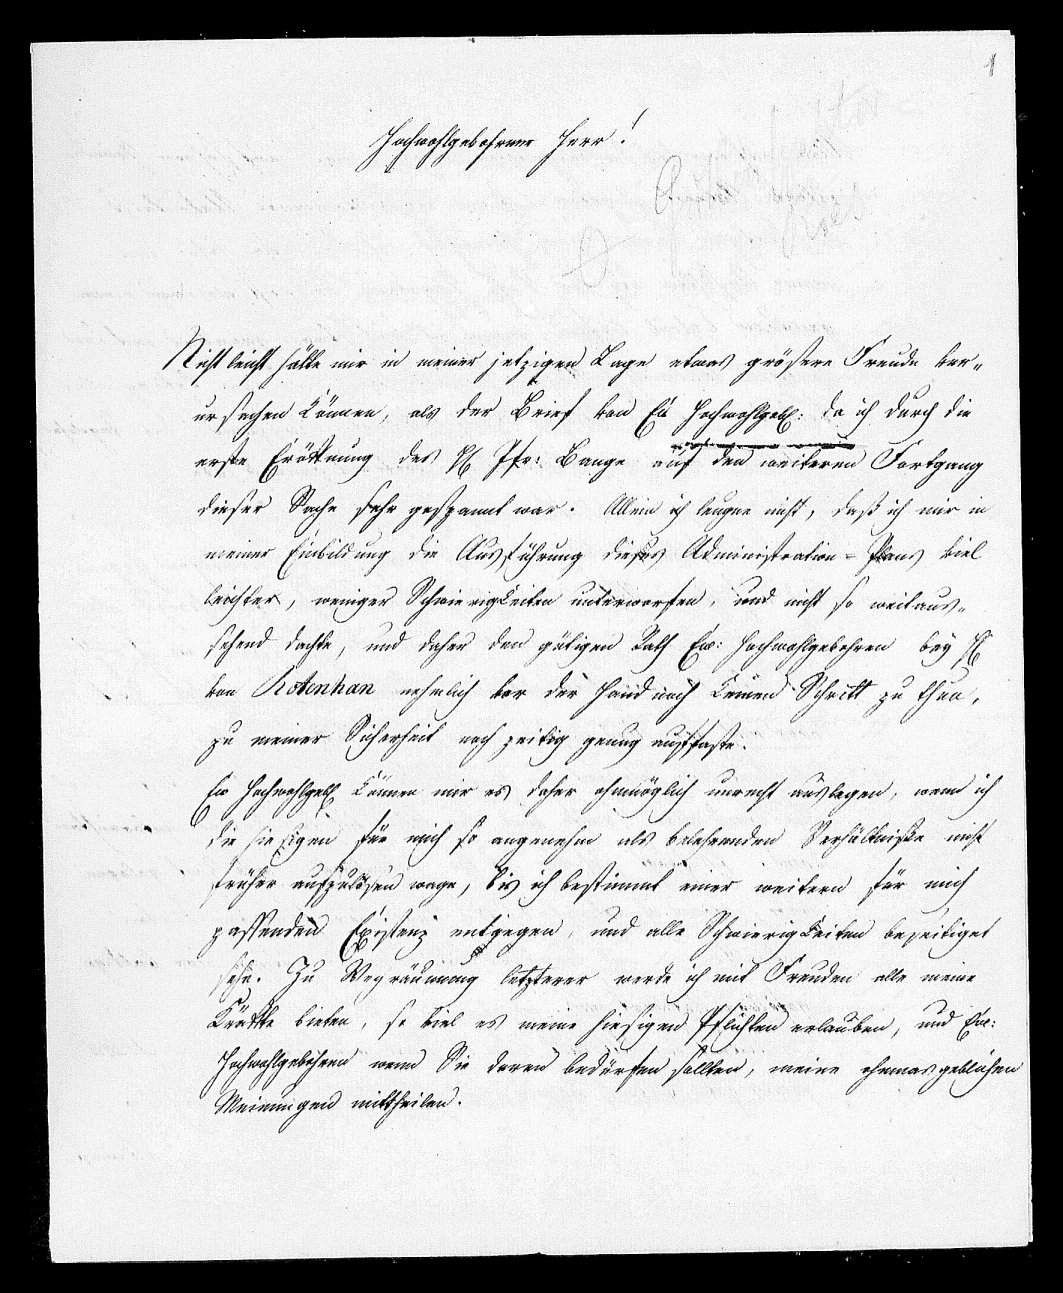 1
Hochwohlgebohrner Herr!
Nicht leicht hätte mir in meiner jetzigen Lage etwas größere Freude ver-
ursachen können, als der Brief von Ew Hochwohlgeb: da ich durch die
erste Eröffnung des H Pfr: Bange auf den weiteren Fortgang
dieser Sache sehr gespannt war. Allein ich leugne nicht, daß ich mir in
meiner Einbildung die Ausführung dieses Administration-Plans viel
leichter, weniger Schwierigkeiten unterworfen, und nicht so weitaus-
sehend dachte, und daher den gütigen Rath Ew: Hochwohlgebohren bey H
von Rotenhan nehmlich vor der Hand noch keinen Schritt zu thun,
zu meiner Sicherheit noch zeitig genug auffaßte.
Ew Hochwohlgeb können mir es daher ohnmöglich unrecht auslegen, wenn ich
die hiesigen für mich so angenehm als belehrenden Verhältniße nicht
früher aufzulösen wage, bis ich bestimmt einer weitern für mich
passenden Existenz entgegen, und alle Schwierigkeiten beseitiget
sehe. Zu Wegräumung letzterer werde ich mit Freuden alle meine
Kräfte bieten, so viel es meine hiesigen Pflichten erlauben, und Ew:
Hochwohlgebohren wenn Sie deren bedürfen sollten, meine ohnmasgeblichen
Meinungen mittheilen.